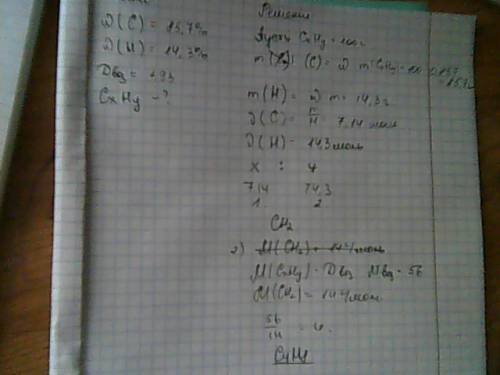 ω(C) = 85,7%
ω(H) = 14,3%
Dвозд = 1,93
CxHy - ?
Решение
Пусть CxHy = 100г
(C) = ω m(CxHy) = 100 0,857 = 85,7г
m(H) = ω m = 14,3г
ν(C) = m/M 7,14 моль
ν(H) = 14,3 моль
x : y
7,14 14,3
1 2
CH2
2) M(CH2) = 14 г/моль
M(CxHy) = Dвозд Mвозд = 56
M(CH2) = 14 г/моль
56/14 = 4
C4H8